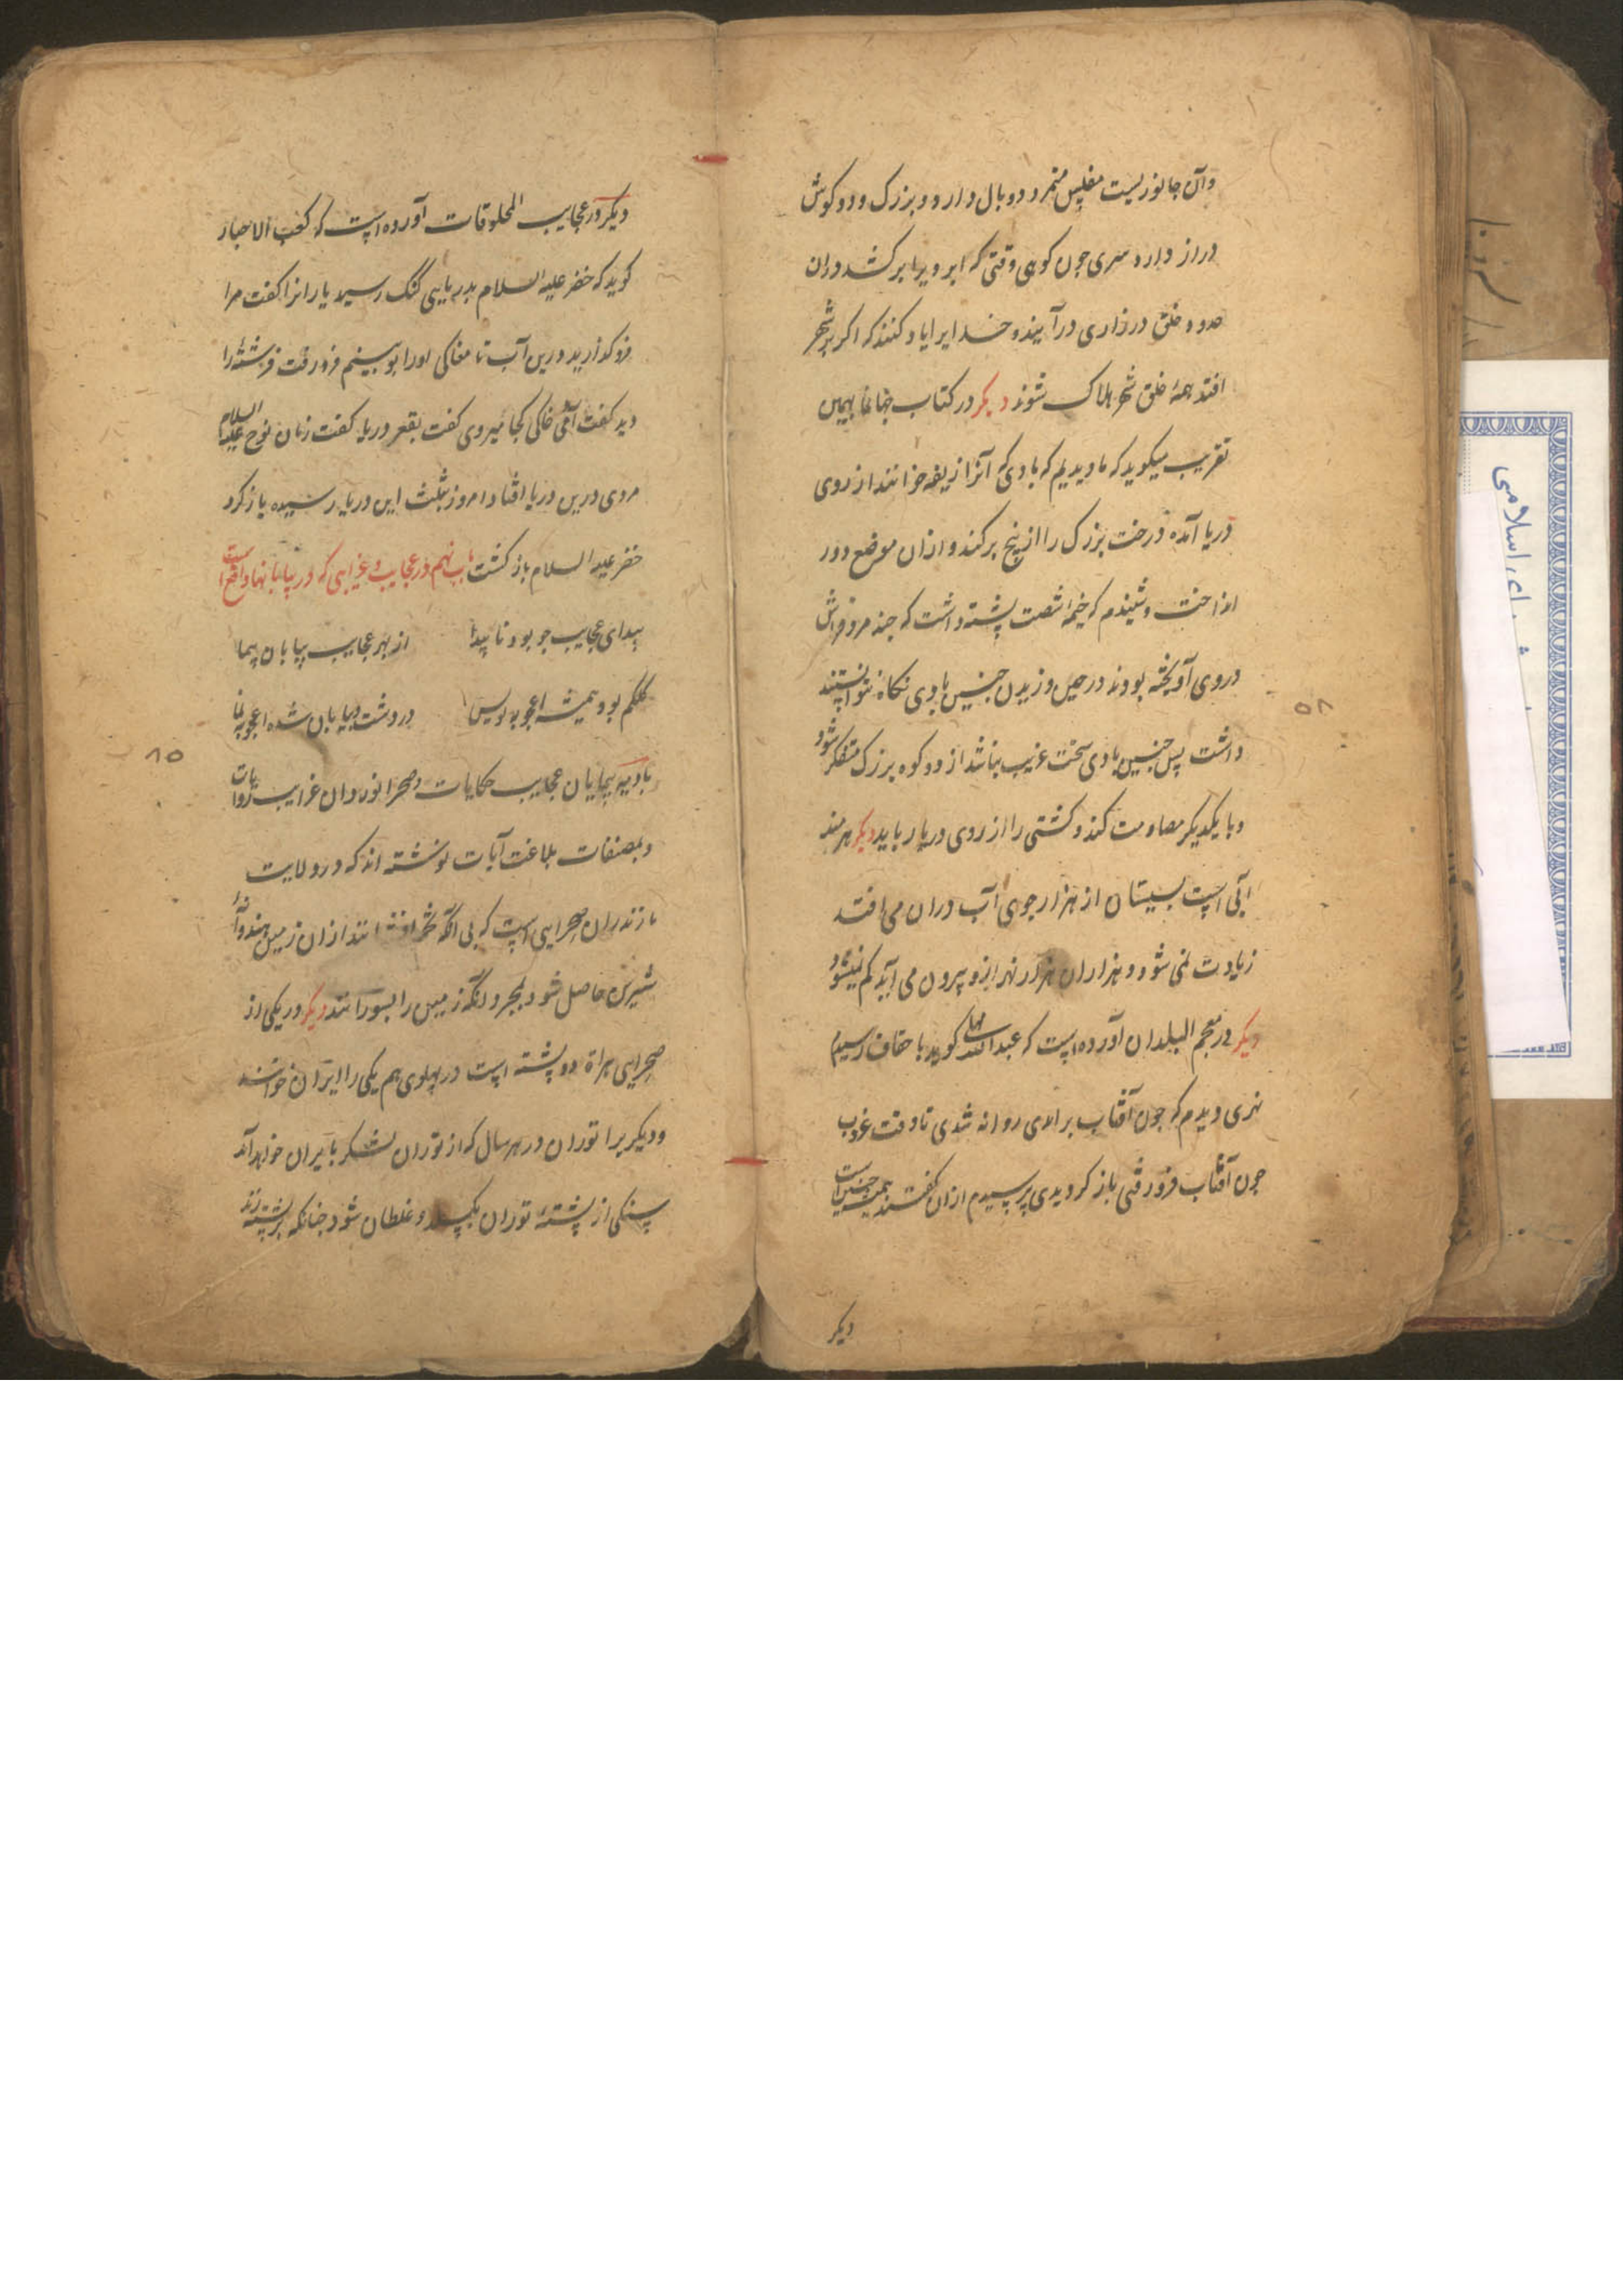 وآن جانوریست مفلس منمر د دو بال دارد و بزرک و دو کوش
دراز دارد و سری جون کوهی وقتی که ابر ویرا بر کشد دران
حدود خلق در زاری در آیند و خدایرا یاد کنند که اکر بر شهر
افتد همهٔ خلق شهر هلاک شوند دیکر در کتاب جهانما بهمین
تقریب میکوید که ما دیدیم که بادی که آنرا از یفه خوانند از روی
دریا آمده درخت بزرک را از بیخ بر کند و ازان موضع دور
انداخت و شنیدم که خیمهٔ شصت پشته داشت که چند مرد فراش
در وی آویخته بودند در حین وزیدن جنین بادی نکاه نتوانستند
داشت پس جنین بادی سخت غریب نباشد از دو کوه بزرک متفکر شود
و با یکدیکر مصادمت کند و کشتی را از روی دریا رباید دیکر هرمند
آبی است بسیستان از هزار جوی آب دران می افتد
زیادت نمی شود و هزاران هزار نهر ازو بیرون می آید کم نمیشود
دیکر در معجم البلدان آورده است که عبدالله کوید باحقاف رسیدم
نهری دیدم که جون آفتاب برآمدی روانه شدی تا وقت غروب
جون آفتاب فرو رفتی باز کردیدی پرسیدم ازان کفتند همیشه جنین است
دیکر
۵۸
دیکر در عجایب المخلوقات آورده است که کعب الاحبار
کوید که خضر علیه السلام بدریایی کنک رسید یارانرا کفت مرا
فرو کذارید درین آب تا مغاکی اورا بوبینم فرو رفت فرشتهٔ را
دید کفت آدمی خاکی کجا میروی کفت بقعر دریا کفت زمان نوح علیه السلام
مردی درین دریا افتاد امروز بثلث این دریا رسیده باز کرد
خضر علیه السلام باز کشت باب نهم در عجایب و غرایبی که در بیابانها واقع است
بیدای عجایب جو بود نا پیدا از بهر عجایب بیابان پیما
کلکم بود همیشه اعجوبه نویس در دشت و بیابان شده اعجوبه نما
بادیه پیمایان عجایب حکایات و صحرا نوردان غرایب روایات
و بمصنفات بلاغت آیات نوشته اند که در ولایت
مازندران صحرایی است که بی آنکه تخم افشانند ازان زمین هندوانهٔ
شیرین حاصل شود بمجرد آنکه زمین را بسوزانند دیکر در یکی از
صحرایی هراة دو پشته است در پهلوی هم یکی را ایران خوانند
و دیکر یرا توران در هر سال که از توران لشکر بایران خواهد آمد
سنکی از پشتهٔ توران بکسلد و غلطان شود جنانکه بر پشته زند